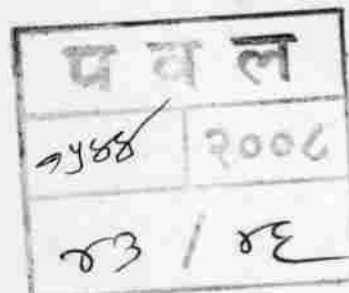 प व ल
१५४४ २००८
४३ / ४६